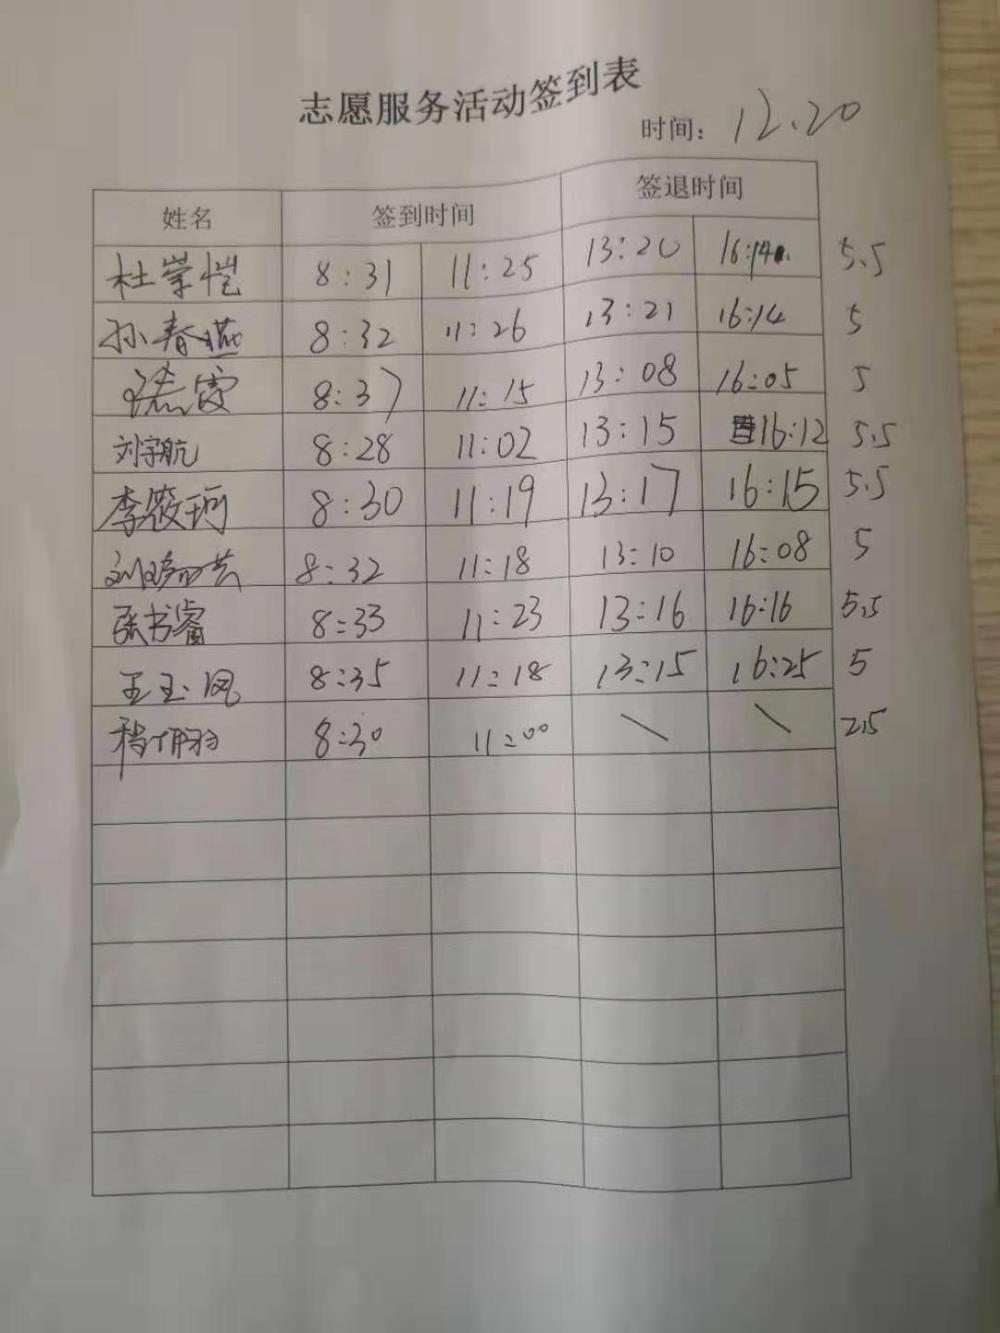 志愿服务活动签到表
时间：12.20
姓名 签到时间 签退时间
杜学恺 8:31 11:25 13:20 16:14 5.5
孙春燕 8:32 11:26 13:21 16:14 5
霞 8:37 11:15 13:08 16:05 5
刘宇航 8:28 11:02 13:15 16:12 5.5
李筱珂 8:30 11:19 13:17 16:15 5.5
刘 8:32 11:18 13:10 16:08 5
张书睿 8:33 11:23 13:16 16:16 5.5
王玉凤 8:35 11:18 13:15 16:25 5
8:30 11:00 \ \ 2.5